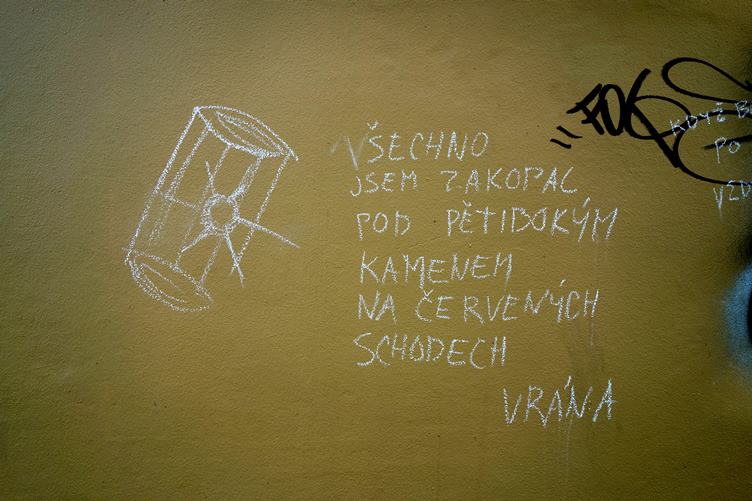 VŠECHNO
JSEM ZAKOPAL
POD PĚTIBOKÝM
KAMENEM
NA ČERVENÝCH
SCHODECH
VRÁNA
KDYŽ
PO